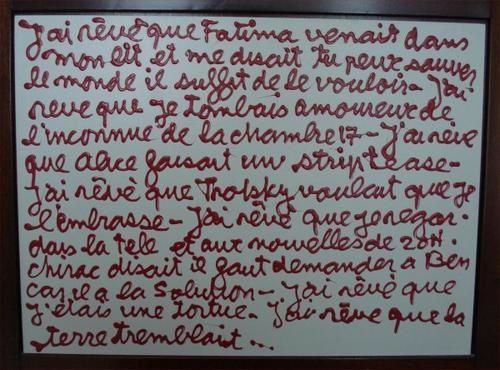 J'ai rêvé que Fatima venait dans
mon lit et me disait tu peux sauver
le monde il suffit de le vouloir - j'ai
reve que je tombais amoureux de
l'inconnue de la chambre 17 - J'ai rêvé
que Alice faisait un strip tease -
J'ai rêvé que Trotsky voulait que je
l'embrasse - j'ai rêvé que je regar-
dais la télé et aux nouvelles de 20H.
chirac disait il faut demander a Ben
car il a la Solution - j'ai rêvé que
j'étais une tortue - j'ai rêve que la
terre tremblait ...